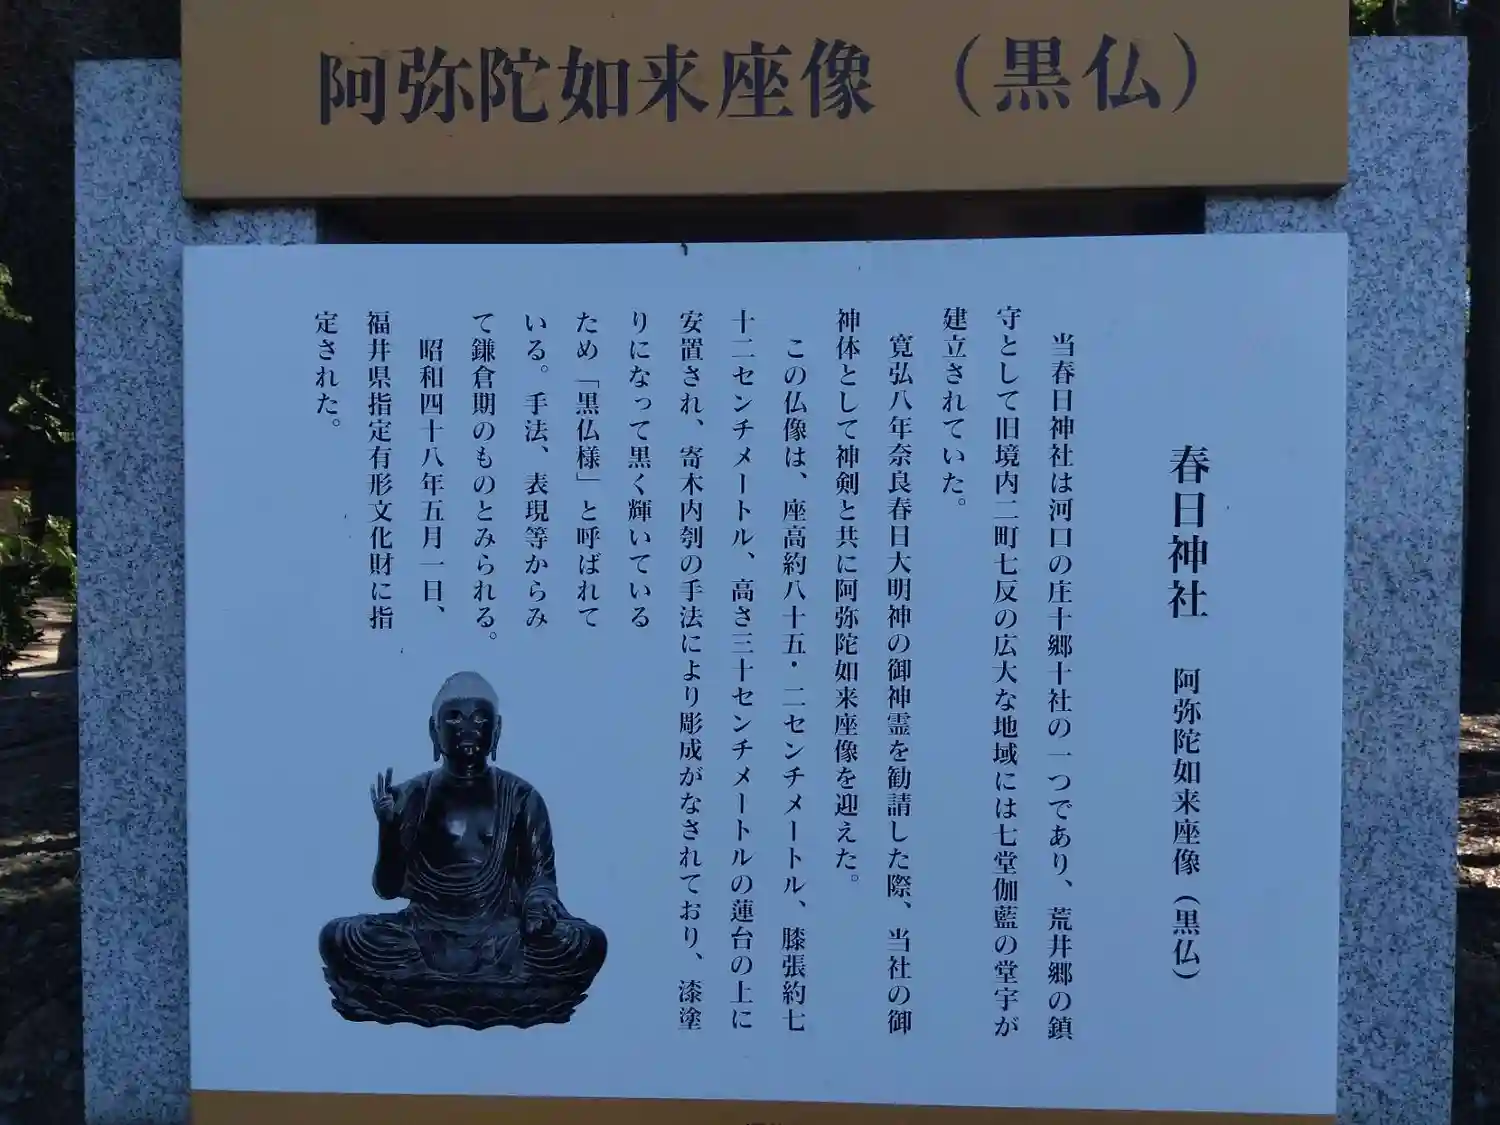 阿弥陀如来座像（黒仏）
春日神社　阿弥陀如来座像（黒仏）
当春日神社は河口の庄十郷十社の一つであり、荒井郷の鎮
守として旧境内二町七反の広大な地域には七堂伽藍の堂宇が
建立されていた。
寛弘八年奈良春日大明神の御神霊を勧請した際、当社の御
神体として神剣と共に阿弥陀如来座像を迎えた。
この仏像は、座高約八十五・二センチメートル、膝張約七
十二センチメートル、高さ三十センチメートルの蓮台の上に
安置され、寄木内刳の手法により彫成がなされており、漆塗
りになって黒く輝いている
ため「黒仏様」と呼ばれて
いる。手法、表現等からみ
て鎌倉期のものとみられる。
昭和四十八年五月一日、
福井県指定有形文化財に指
定された。